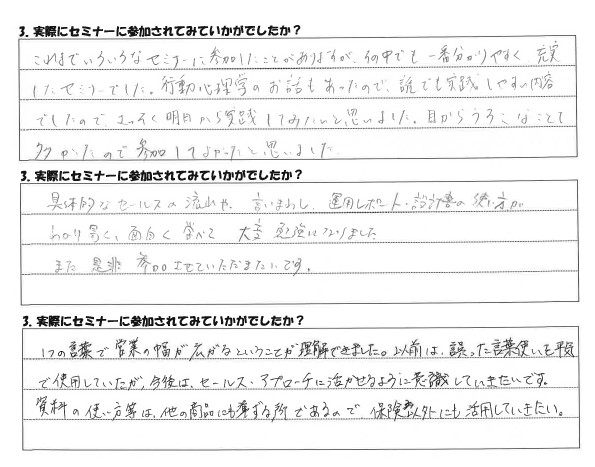 3. 実際にセミナーに参加されてみていかがでしたか？
これまでいろいろなセミナーに参加したことがありますが、その中でも一番分かりやすく、充実
したセミナーでした。行動心理学のお話もあったので、誰でも実践しやすい内容
でしたので、さっそく明日から実践してみたいと思いました。目からうろこなことも
多かったので参加してよかったと思いました。
3. 実際にセミナーに参加されてみていかがでしたか？
具体的なセールスの流れや、言いまわし、運用レポート・設計書の使い方が
わかり易く、面白く学べて 大変勉強になりました
また是非参加させていただきたいです。
3. 実際にセミナーに参加されてみていかがでしたか？
1つの言葉で営業の幅が広がるということが理解できました。以前は、誤った言葉使いを平気
で使用していたが、今後は、セールス・アプローチに活かせるように意識していきたいです。
資料の使い方等は、他の商品にも準ずる所であるので、保険以外にも活用していきたい。